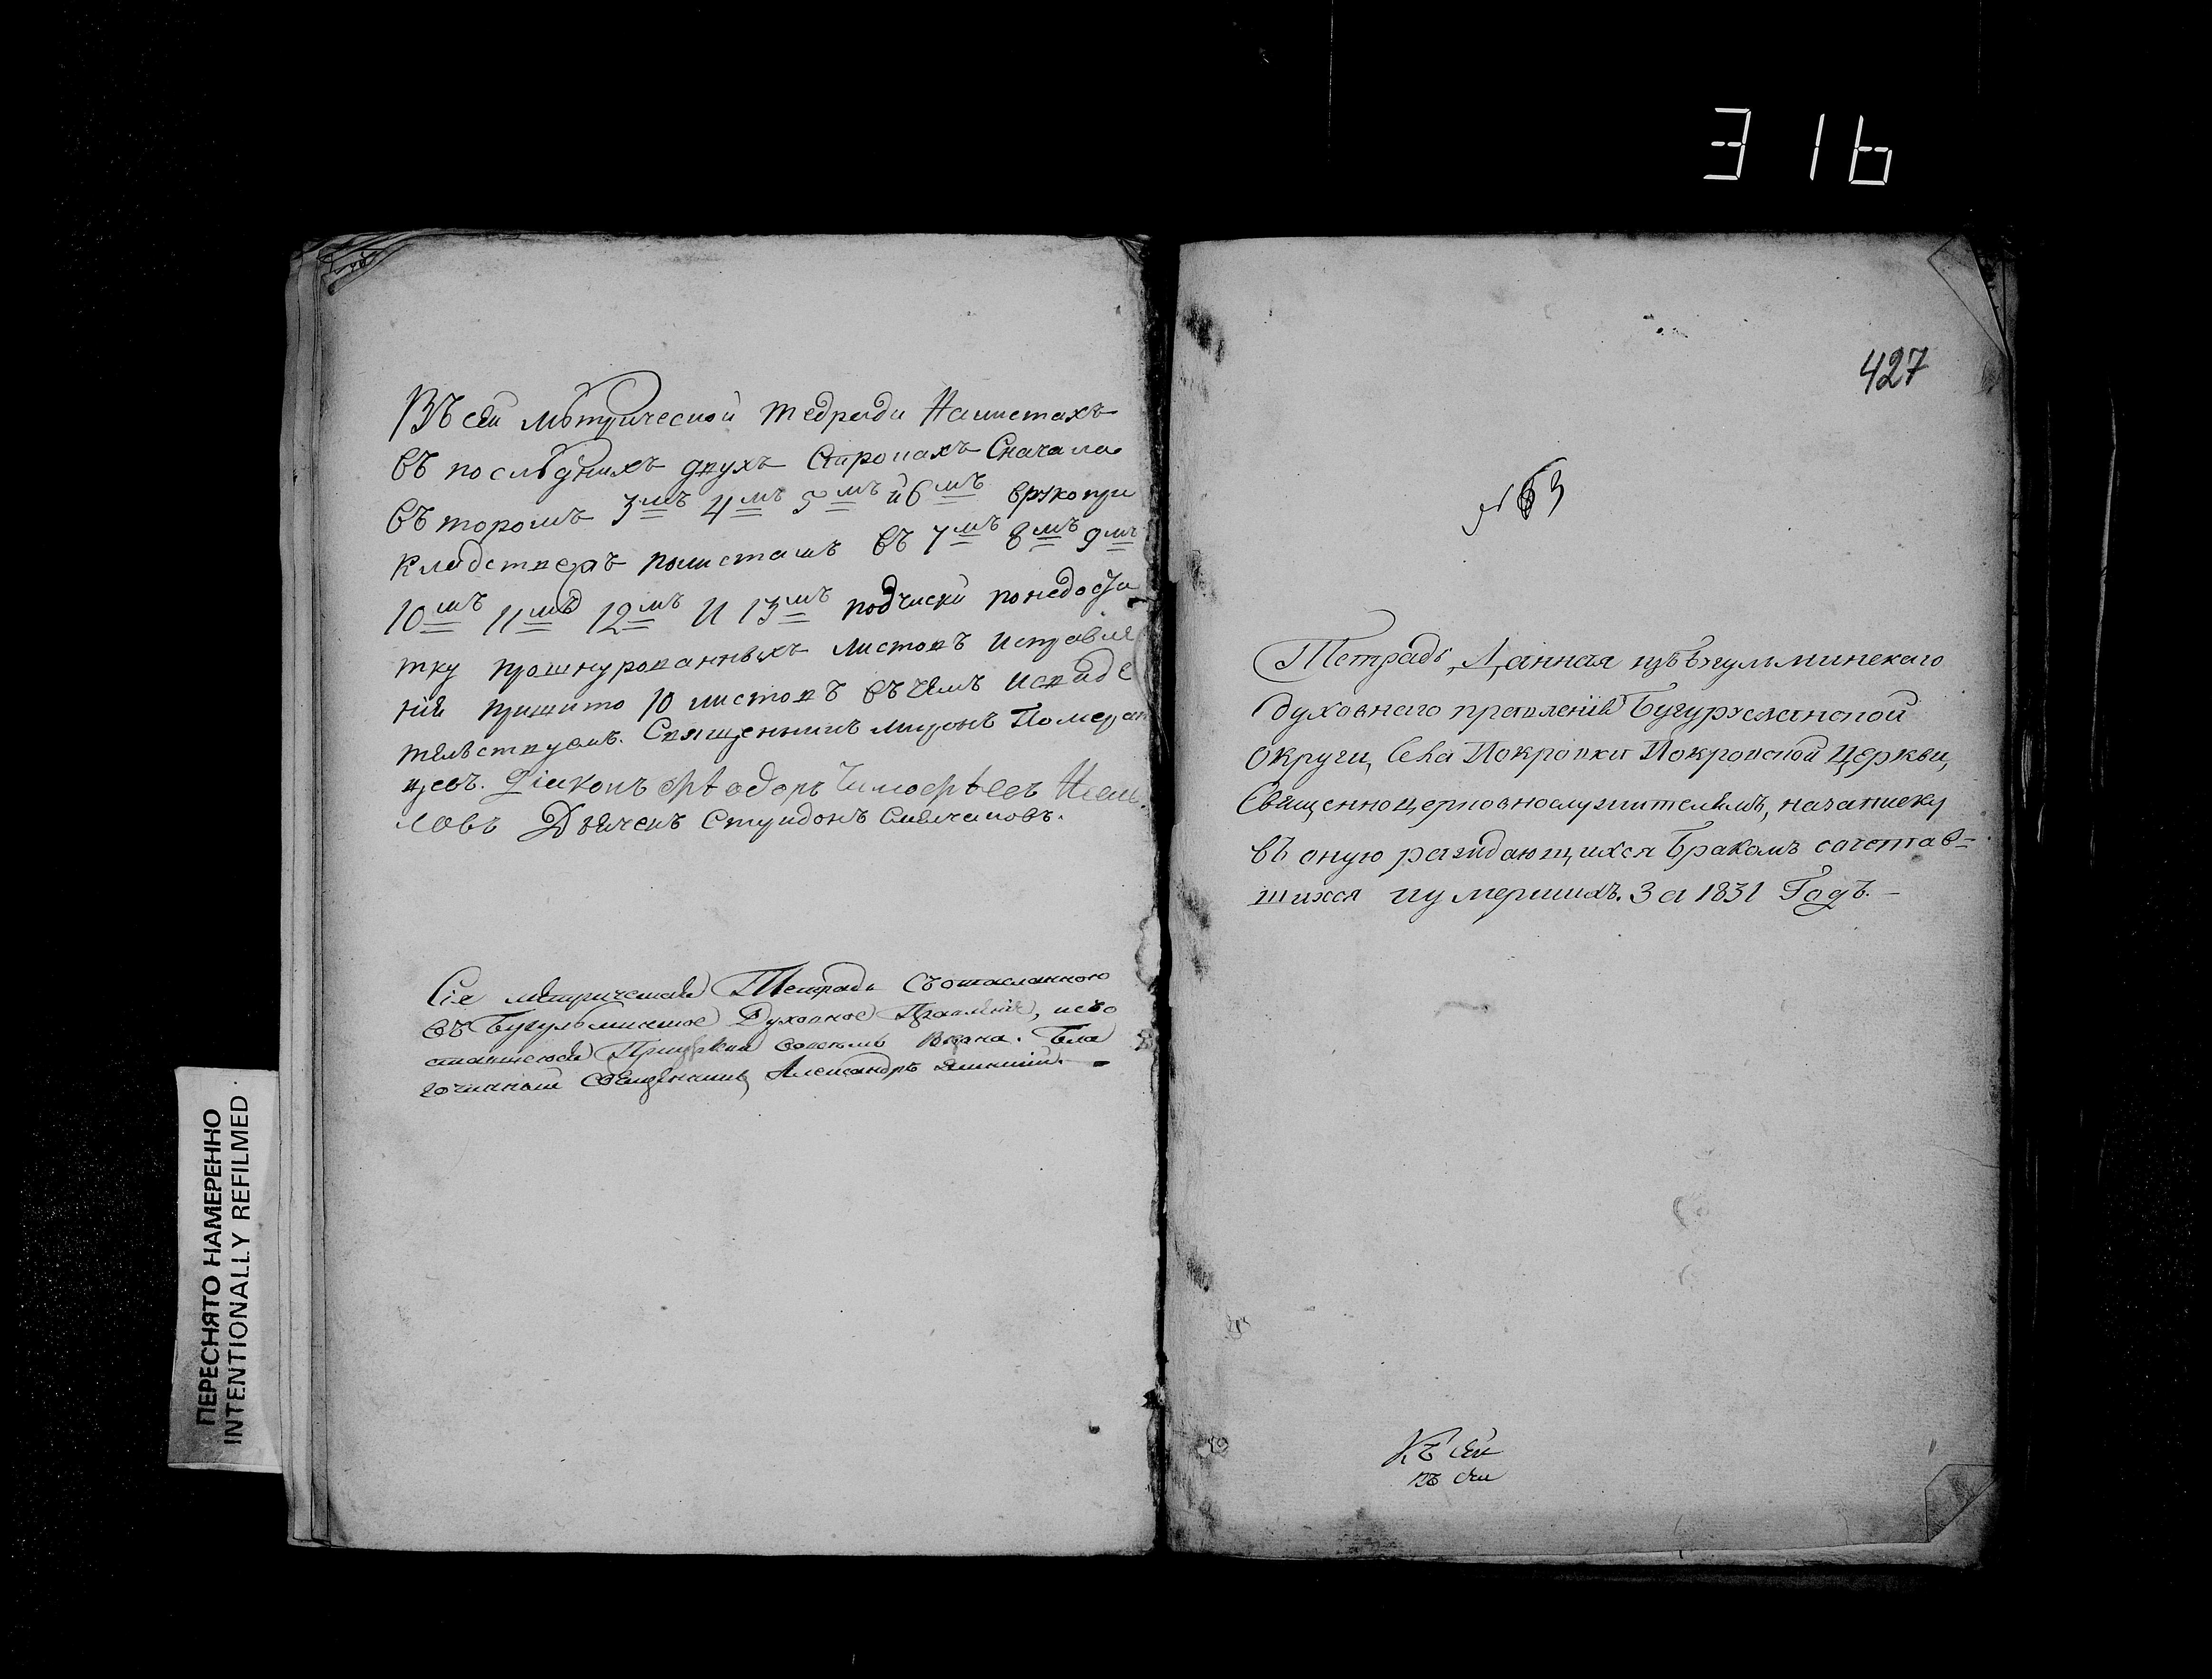 316
Въ сей мѣтрической тедради На листахъ
въ послѣднихъ двухъ Строкахъ Сначала
въ торомъ 3мъ 4мъ 5мъ и 6мъ врукопри
кладстверъ по листамъ въ 7мъ 8мъ 9мъ
10мъ 11мъ 12мъ И 13мъ подчиски по недоста
тку прошнурованныхъ листовъ исправле
ній пришито 10 листовъ въ чемъ исвиде
телствуемъ. Священникъ Миронъ Померан
цевъ. Діаконъ Ѳеодоръ Тимоѳеевъ
ловъ Дьячекъ Спиридонъ
Сія мѣтрическая Тетрадь Съ отосланною
въ Бугульминское Духовное Правленіе, и съ о
ставшеюся При церкви во всемъ Верна. Бла
гочинный Священникъ Александръ
ПЕРЕСНЯТО НАМЕРЕННО
INTENTIONALLY REFILMED
427
№ 63
Тетрадь, Данная изъ Бугульминскаго
духовнаго правленія Бугурусланской
округи, Села Покровки Покровской Церкви,
Священноцерковнослужителямъ, на записку
въ оную раждающихся Бракомъ сочетав=
шихся и умершихъ. За 1831 Годъ. —
Къ сей
въ сей